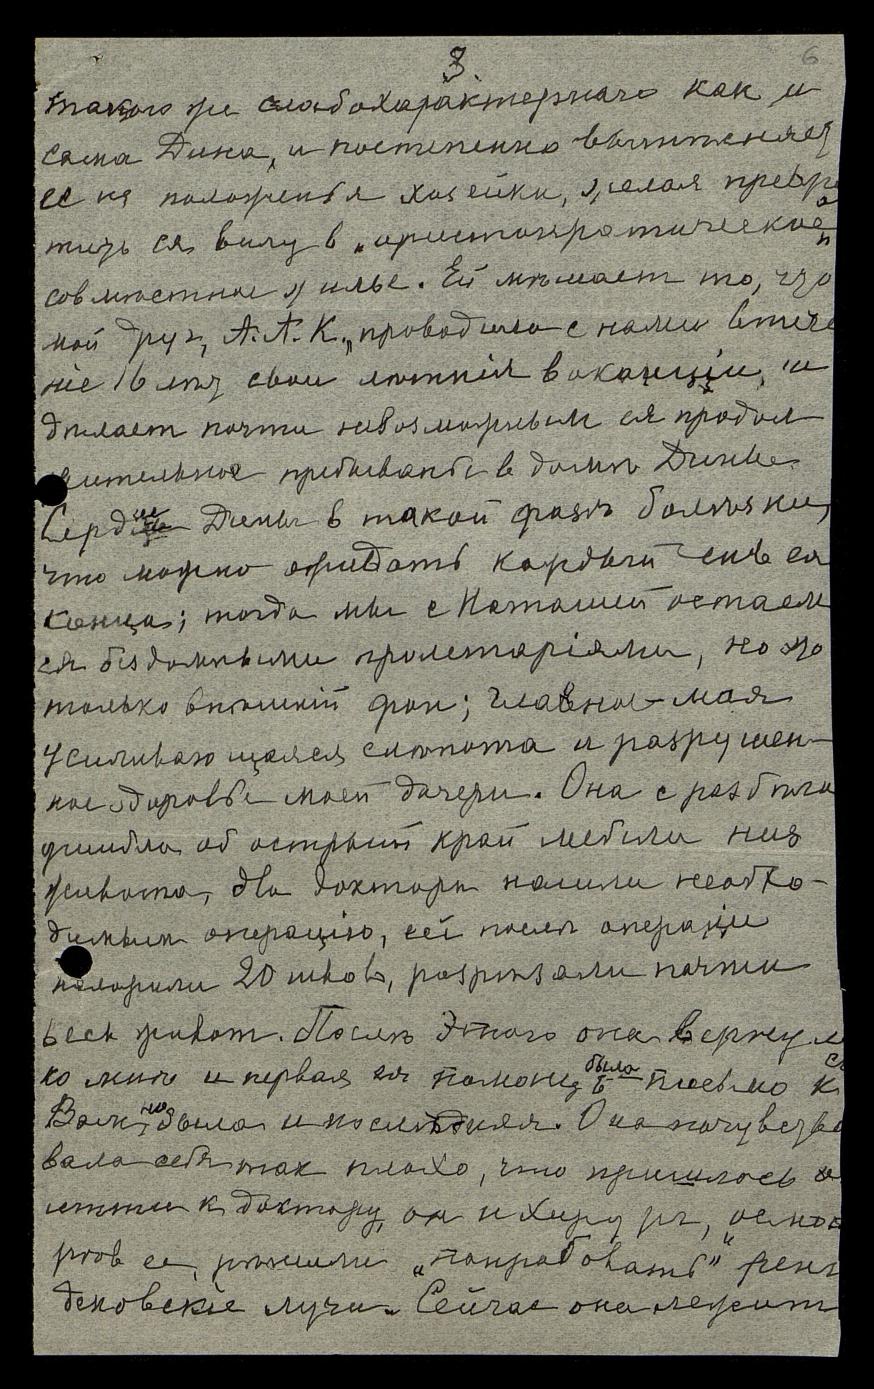 3
6
такого же слабохарактернаго как и
сама Дина, и постепенно вытѣсняет
ее из положенья хозейки, желая превра
тить ся виллу в „аристократическое"
совмѣстное жилье. Ей мѣшает то, что
мой друг, А. А. К. проводила с нами в тече
ніе 16 лѣт свои лѣтнія вокаціи, и
дѣлает почти невозможным ея продол
жительное пребыванье в домѣ Дины.
Сердце Дины в такой фазѣ болѣзни,
что можно ожидать каждый день ея
конца; тогда мы с Наташей остаем
ся бездомными пролетаріями, но это
только внѣшній фон; главное – моя
усиливающаяся слѣпота и разрушен-
ное здоровье моей дочери. Она с разбѣга
ушибла об острый край мебели низ
живота, два доктора нашли необхо-
димым операцію, ей послѣ операціи
наложили 20 швов, разрѣзали почти
весь живот. Послѣ этого она вернулась
ко мнѣ и первая ея помощь была письмо к
Вам, но была и послѣдняя. Она почувство
вала себя так плохо, что пришлось
итти к доктору, он и хирург, осмот
рѣв ее, рѣшили „попробовать" рент
геновскіе лучи. Сейчас она лежит